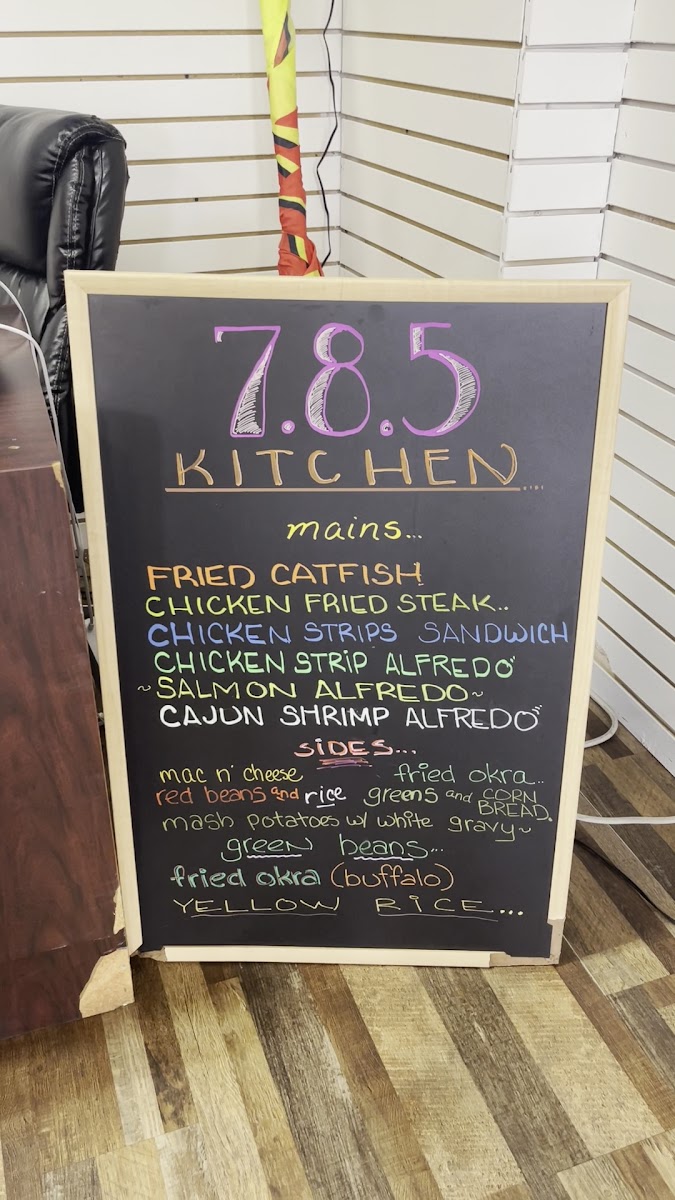 7.8.5
KITCHEN...
mains...
FRIED CATFISH
CHICKEN FRIED STEAK..
CHICKEN STRIPS SANDWICH
CHICKEN STRIP ALFREDO
~SALMON ALFREDO~
CAJUN SHRIMP ALFREDO
SIDES...
mac n' cheese fried okra..
red beans and rice greens and CORN BREAD.
mash potatoes w/ white gravy~
green beans...
fried okra (buffalo)
YELLOW RICE...